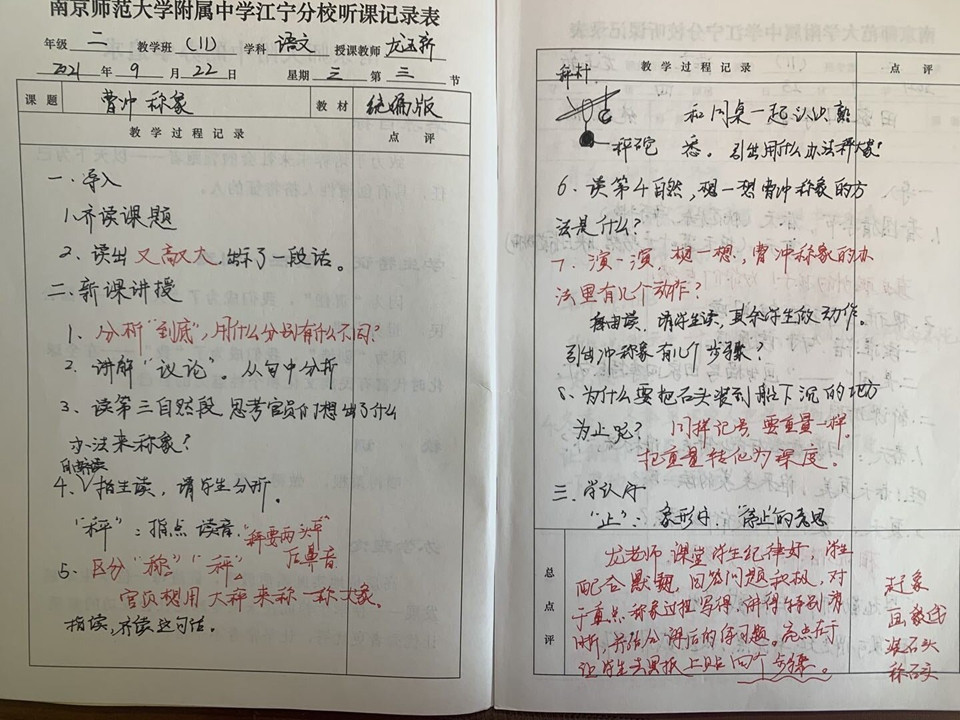 南京师范大学附属中学江宁分校听课记录表
年级 二 教学班 (11) 学科 语文 授课教师
2021 年 9 月 22 日 星期 三 第 三 节
课题 曹冲称象 教材 统编版
教学过程记录 点评
一、导入
1.齐读课题
2. 读出又高又大 出示了一段话。
二、新课讲授
1. 分析"到底",用什么分别有什么不同?
2. 讲解"议论"。从句中分析
3. 读第三自然段 思考官员们想出了什么
办法来称象?
自由读
4. 指生读,请学生分析。
"秤":指点 读音 "秤要两头平"
后鼻音
5. 区分"称""秤"
官员想用大秤来称一称大象。
指读,齐读这句话。
教学过程记录 点评
秤杆
和同桌一起认识熟
秤砣 悉。引出用什么办法称大象?
6. 读第4自然,想一想曹冲称象的方
法是什么?
7. 演一演,想一想,曹冲称象的办
法里有几个动作?
自由读,请学生读,其余学生做动作。
引出冲称象有几个步骤?
8. 为什么要把石头装到船下沉的地方
为止呢? 同样记号,要重量一样。
把重量转化为深度。
三、学认字
"止":象形字。"停止"的意思
总点评
龙老师 课堂学生纪律好,学生
配合默契,回答问题积极,对
于重点称象过程写得、讲得特别清
晰,并结合课后的练习题。亮点在于
让学生去黑板上贴四个步骤。
赶象
画线
装石头
称石头